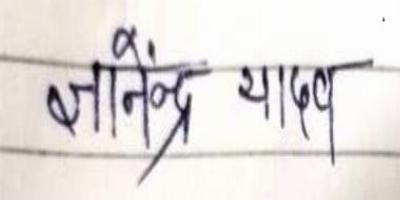 ज्ञानेंन्द्र यादव